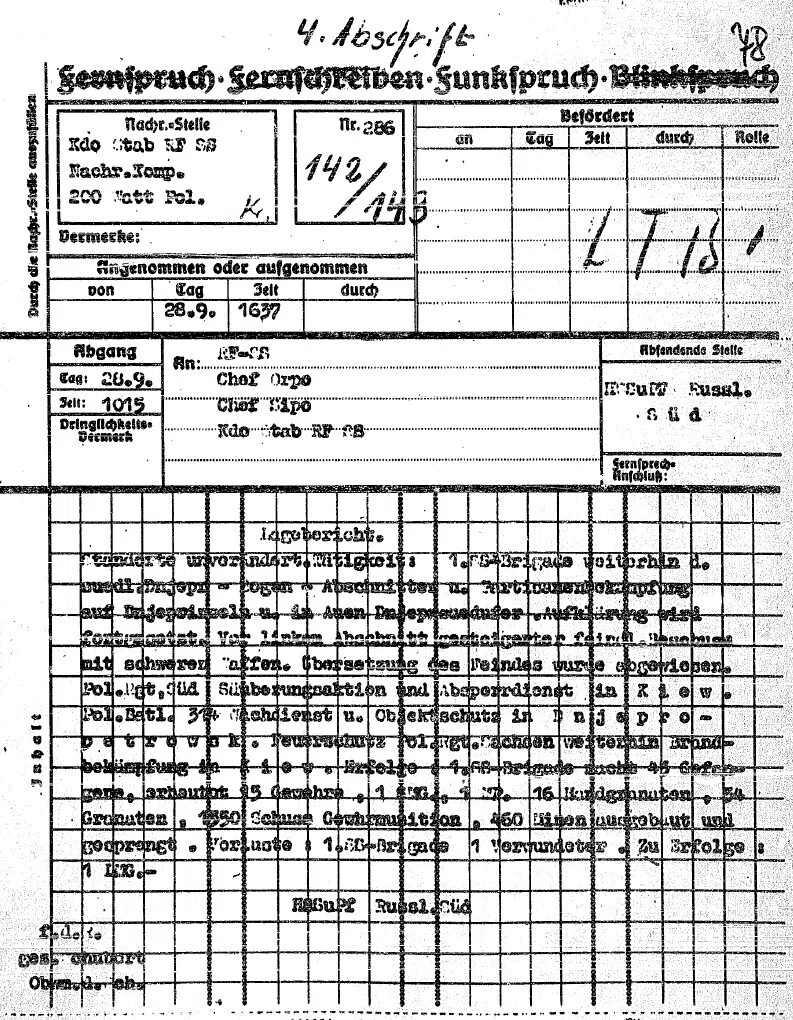 4. Abschrift
78
Fernspruch · Fernschreiben · Funkspruch · Blinkspruch
Durch die Nachr.-Stelle auszufüllen
Nachr.-Stelle
Kdo Stab RF SS
Nachr.Komp.
200 Watt Pol.
K.
Nr. 286
142/143
Befördert
an Tag Zeit durch Rolle
LTB
Vermerke:
Angenommen oder aufgenommen
von Tag Zeit durch
28.9. 1637
Abgang
Tag: 28.9.
Zeit: 1015
Dringlichkeits-
Vermerk
An: RF-SS
Chef Orpo
Chef Sipo
Kdo Stab RF SS
Absendende Stelle
HSSuPF Russl.
S ü d
Fernsprech-
Anschluß:
Inhalt
Lagebericht.
Standorte unverändert.Tätigkeit: 1.SS-Brigade weiterhin d.
suedl.Dnjepr - Bogen - Abschnittes u. Partisanenbekämpfung
auf Dnjeprinseln u. in Auen .Aufklärung wird
fortgesetzt. Vor linkem Abschnitt gesteigerter feindl.
mit schweren Waffen. Übersetzung des Feindes wurde abgewiesen.
Pol.Rgt.Süd Säuberungsaktion und Absperrdienst in K i e w .
Pol.Batl. 314 Wachdienst u. Objektschutz in D n j e p r o -
p e t r o w s k . Feuerschutz Pol.Rgt.Sachsen weiterhin Brand-
bekämpfung in K i e w . Erfolge : 1.SS-Brigade machte 45 Gefan-
gene, erbeutet 15 Gewehre , 1 , 1 MP. 16 Handgranaten , 34
Granaten , 1350 Schuss Gewhrmunition , 460 Minen ausgebaut und
gesprengt . Verluste : 1.SS-Brigade 1 Verwundeter . Zu Erfolge :
1 LMG.-
HSSuPf Russl.Süd
f.d.R.
gez.